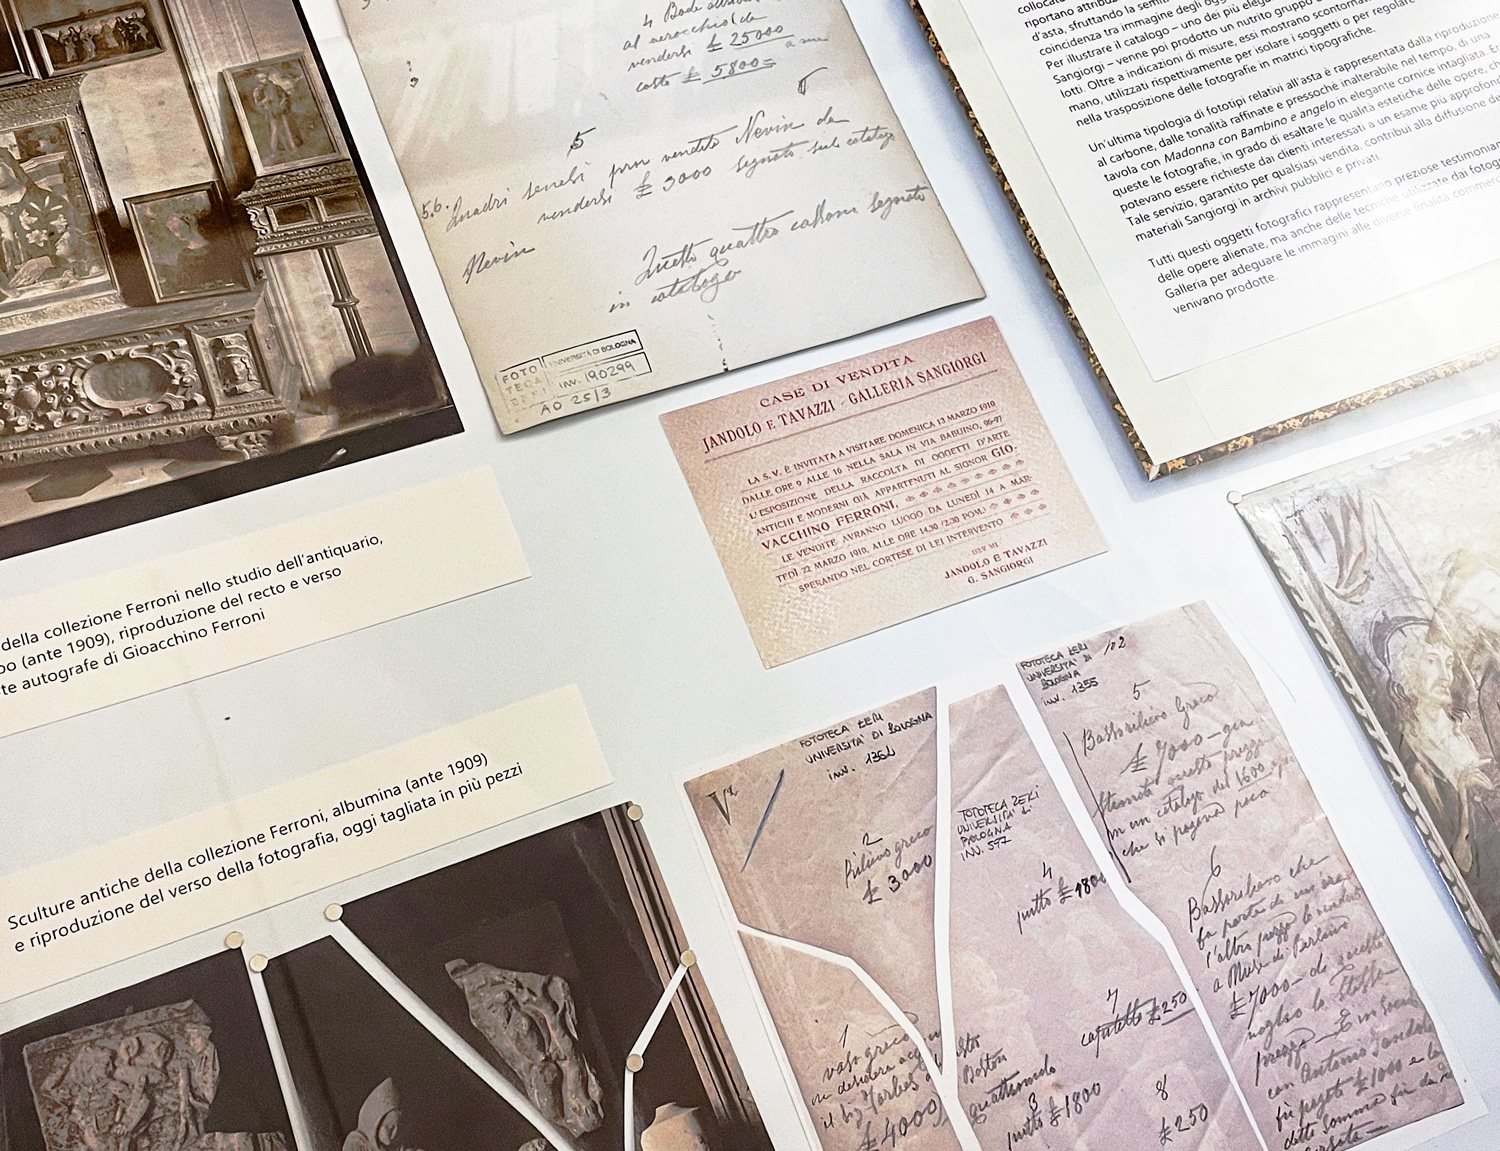 4 Bode
al verocchio (da
vendersi £ 25000
costo £ 5800=
5
5.6. Quadri senesi pm vendito Nevin da
vendersi £ 3000 segnato sul catalogo
Nevin
Questi quattro cassoni segnato
in catalogo
FOTO
TECA
ZERI
UNIVERSITÀ DI BOLOGNA
inv. 190299
AD 25/3
collocat
riportano attribuz
d'asta, sfruttando la semit
coincidenza tra immagine degli ogg
Per illustrare il catalogo – uno dei più elega
Sangiorgi – venne poi prodotto un nutrito gruppo
lotti. Oltre a indicazioni di misure, essi mostrano scontornat
mano, utilizzati rispettivamente per isolare i soggetti o per regolare
nella trasposizione delle fotografie in matrici tipografiche.
Un'ultima tipologia di fototipi relativi all'asta è rappresentata dalla riproduzione
al carbone, dalle tonalità raffinate e pressoché inalterabile nel tempo, di una
tavola con Madonna con Bambino e angelo in elegante cornice intagliata. En
queste fotografie, in grado di esaltare le qualità estetiche delle opere, ch
potevano essere richieste dai clienti interessati a un esame più approfond
Tale servizio, garantito per qualsiasi vendita, contribuì alla diffusione de
materiali Sangiorgi in archivi pubblici e privati.
Tutti questi oggetti fotografici rappresentano preziose testimonian
delle opere alienate, ma anche delle tecniche utilizzate dai fotog
Galleria per adeguare le immagini alle diverse finalità commerc
venivano prodotte.
CASE DI VENDITA
JANDOLO E TAVAZZI - GALLERIA SANGIORGI
LA S. V. È INVITATA A VISITARE DOMENICA 13 MARZO 1910
DALLE ORE 9 ALLE 16 NELLA SALA IN VIA BABUINO, 96-97
L'ESPOSIZIONE DELLA RACCOLTA DI OGGETTI D'ARTE
ANTICHI E MODERNI GIÀ APPARTENUTI AL SIGNOR GIO-
VACCHINO FERRONI,
LE VENDITE AVRANNO LUOGO DA LUNEDÌ 14 A MAR-
TEDÌ 22 MARZO 1910, ALLE ORE 14,30 (2,30 POM.)
SPERANDO NEL CORTESE DI LEI INTERVENTO
DEV.MI
JANDOLO E TAVAZZI
G. SANGIORGI
della collezione Ferroni nello studio dell'antiquario,
po (ante 1909), riproduzione del recto e verso
te autografe di Gioacchino Ferroni
Sculture antiche della collezione Ferroni, albumina (ante 1909)
e riproduzione del verso della fotografia, oggi tagliata in più pezzi
FOTOTECA ZERI
UNIVERSITA' DI BOLOGNA
inv. 1364
2
Rilievo greco
£ 3000
1
vaso greco
£ 4000
FOTOTECA ZERI
UNIVERSITÀ di
BOLOGNA
inv. 597
4
putto £ 1800
7
capitello £ 250
Boston
quattromila
3
putto £ 1800
8
£ 250
FOTOTECA ZERI
UNIVERSITA' DI
BOLOGNA
inv. 1355
102
5
Bassorilievo Greco
£ 7000 – già
stimato questo prezzo
in un catalogo del 1600
che si pagava poco
6
Bassorilievo che
fa parte di
l'altro pezzo lo vendei
a Museo di Berlino
£ 7000 –
meglio lo stesso
prezzo – È in società
con Antonio Jandolo
fu pagato £ 1000 e la
detta somma fu da